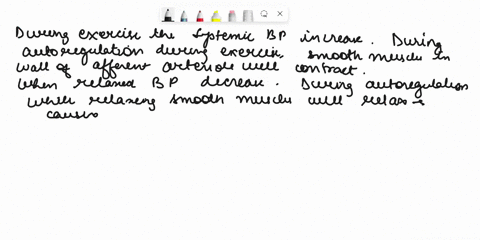 During exercise the systemic BP increase. During
autoregulation during exercise smooth muscle in
wall of afferent arteriole will contract.
When relaxed BP decrease. During autoregulation
while relaxing smooth muscle will relax &
causes